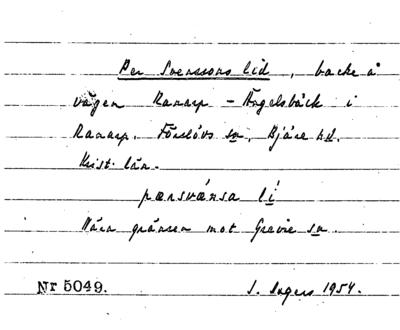 Per Svenssons lid, backe å
vägen Ranarp - Ängelsbäck i
Ranarp. Förslövs sn, Bjäre hd.
Krist. län.
pærsvánsa lí
Nära gränsen mot Grevie sn.
Nr 5049.
S. Ingers 1954.